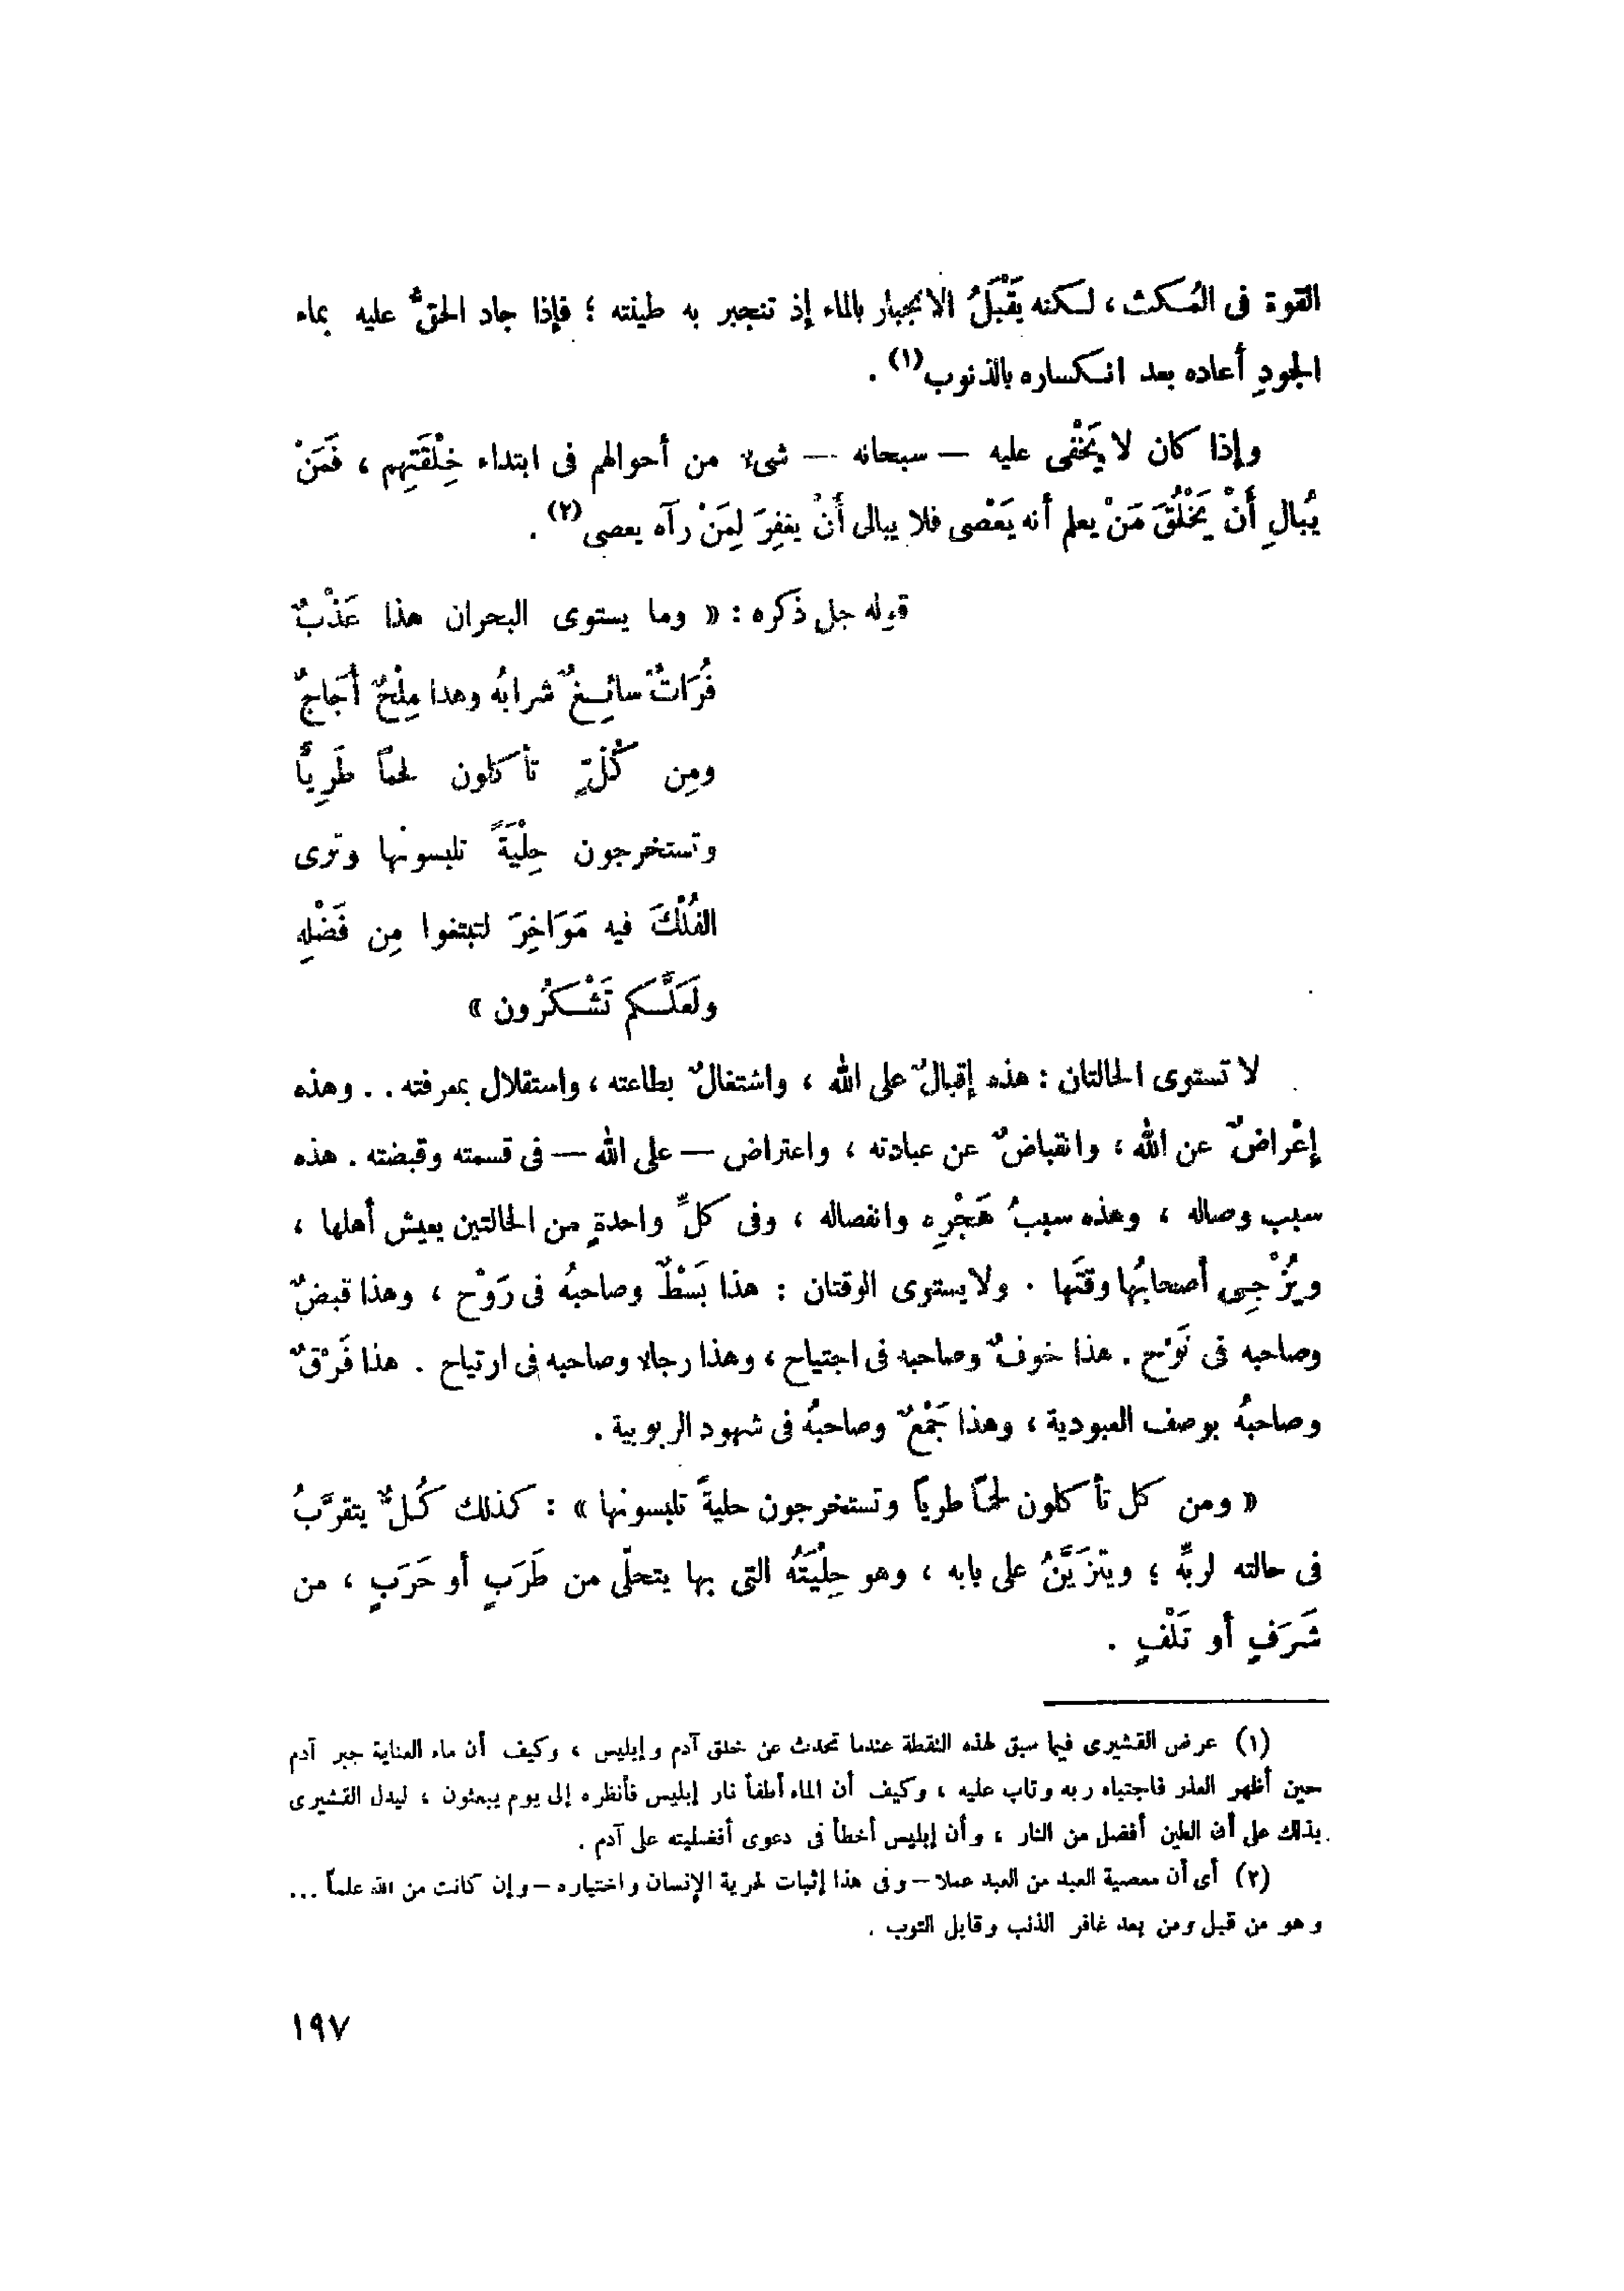 القوة فى المُكث ، لكنه يَقْبَلُ الانجبار بالماء إذ تنجبر به طينته ؛ فإذا جاد الحقُّ عليه بماء
الجودِ أعاده بعد انكساره بالذنوب (١) .
وإذا كان لا يَخْفى عليه — سبحانه — شىء من أحوالهم فى ابتداء خِلْقَتِهم ، فَمَنْ
يُبالِ أَنْ يَخْلُقَ مَنْ يعلم أنه يَعْصى فلا يبالى أَنْ يغفِرَ لِمَنْ رآه يعصى (٢) .
قوله جل ذكره : « وما يستوى البحران هذا عَذْبٌ
فُرَاتٌ سائِغٌ شرابُه وهذا مِلْحٌ أُجَاجٌ
ومِن كُلٍّ تأكلون لحماً طَرِيًّا
وتستخرجون حِلْيَةً تلبسونها وترى
الفُلْكَ فيه مَوَاخِرَ لتبتغوا مِن فَضْلِه
ولَعَلَّكم تَشْكُرُون »
لا تستوى الحالتان : هذه إقبالٌ على الله ، واشتغالٌ بطاعته ، واستقلال بمعرفته . . وهذه
إعْراضٌ عن الله ، وانقباضٌ عن عبادته ، واعتراض — على الله — فى قسمته وقبضته . هذه
سبب وصاله ، وهذه سببُ هَجْرِه وانفصاله ، وفى كلِّ واحدةٍ من الحالتين يعيش أهلها ،
ويُزْجِى أصحابُها وقتَها . ولا يستوى الوقتان : هذا بَسْطٌ وصاحبُه فى رَوْح ، وهذا قبضٌ
وصاحبه فى نَوْح . هذا خوفٌ وصاحبه فى اجتياح ، وهذا رجاء وصاحبه فى ارتياح . هذا فَرْقٌ
وصاحبُه بوصف العبودية ، وهذا جَمْعٌ وصاحبُه فى شهود الربوبية .
« ومن كل تأكلون لحمًا طرياً وتستخرجون حليةً تلبسونها » : كذلك كُلٌّ يتقرَّبُ
فى حالته لربِّه ؛ ويتزَيَّنُ على بابه ، وهو حِلْيَتُه التى بها يتحلَّى من طَرَبٍ أو حَرَبٍ ، من
شَرَفٍ أو تَلْفٍ .
(١) عرض القشيرى فيما سبق لهذه النقطة عندما تحدث عن خلق آدم وإبليس ، وكيف أن ماء العناية جبر آدم
حين أظهر العذر فاجتباه ربه وتاب عليه ، وكيف أن الماء أطفأ نار إبليس فأنظره إلى يوم يبعثون ، ليدل القشيرى
بذلك على أن الطين أفضل من النار ، وأن إبليس أخطأ فى دعوى أفضليته على آدم .
(٢) أى أن معصية العبد من العبد عملا — وفى هذا إثبات لحرية الإنسان واختياره — وإن كانت من الله علماً ...
وهو من قبل ومن بعد غافر الذنب وقابل التوب .
١٩٧